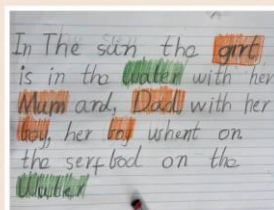 In The sun the girl
is in the water with her
Mum and, Dad with her
boy, her boy whent on
the serf bod on the
Water